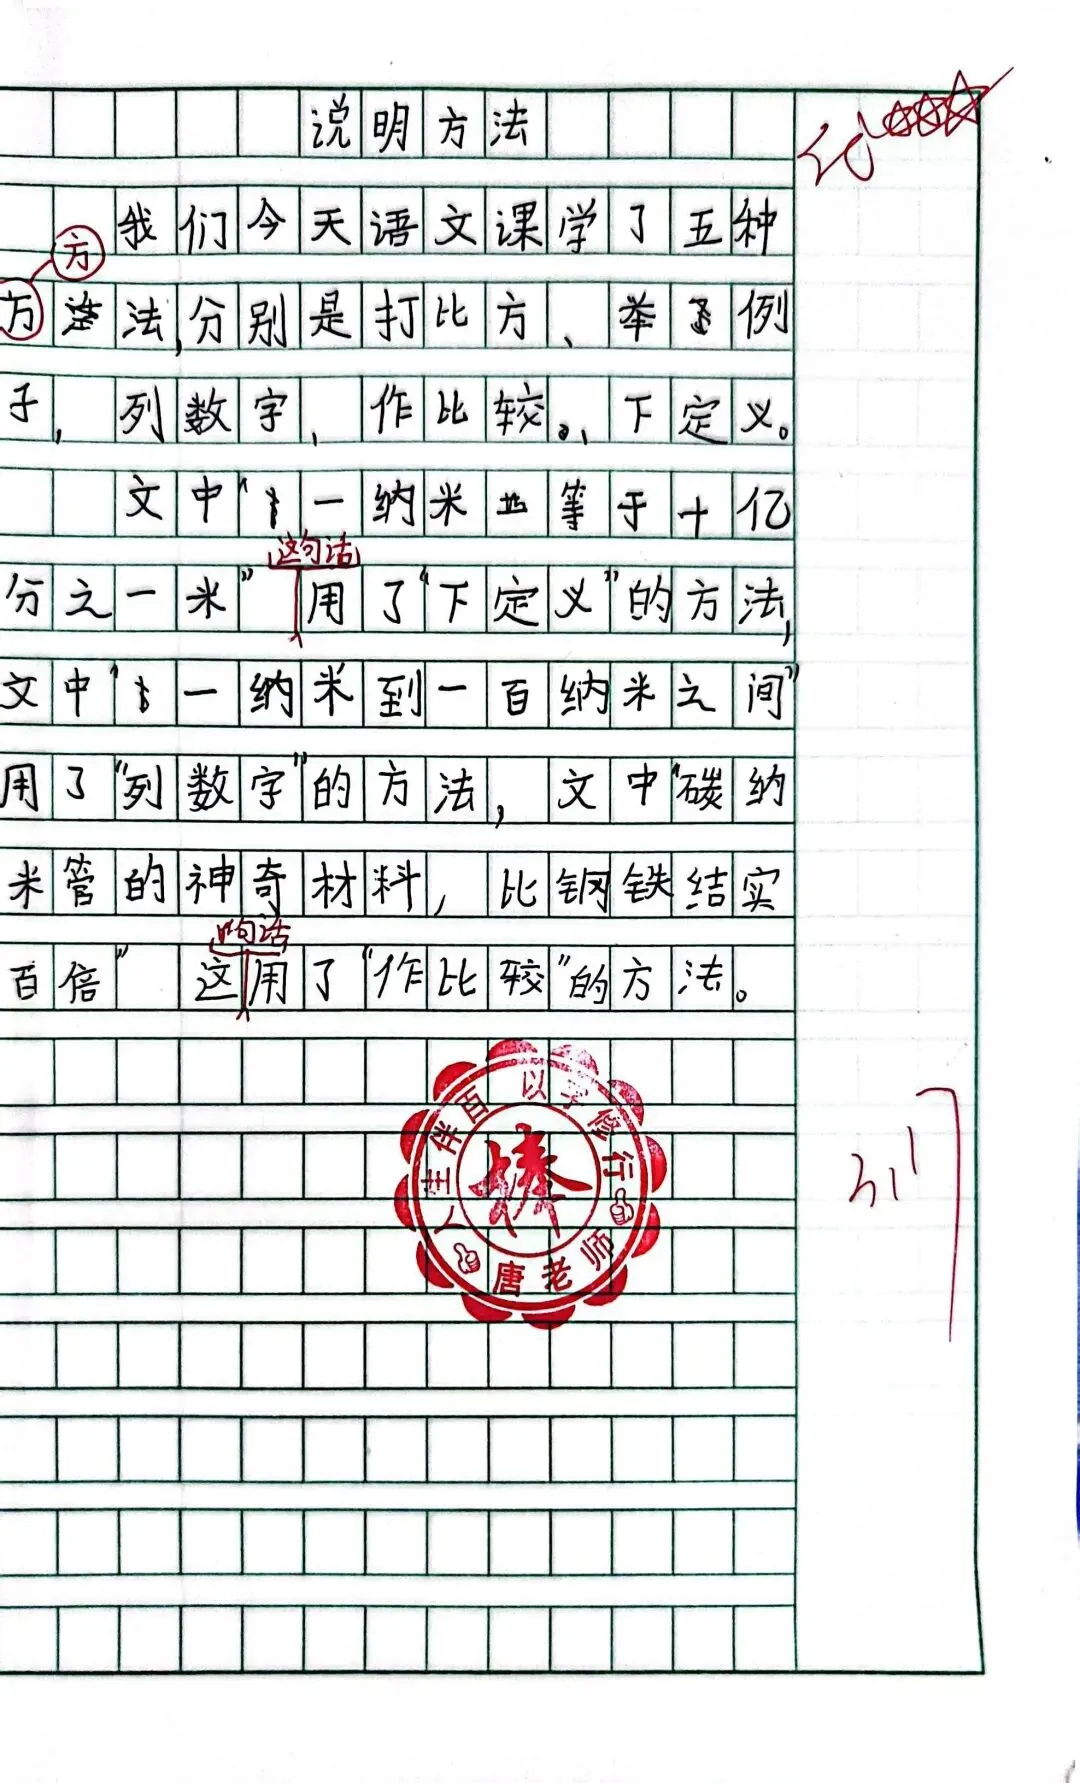 说明方法
优
我们今天语文课学了五种
方
方法,分别是打比方、举例
子,列数字、作比较、下定义。
文中“一纳米等于十亿
这句话
分之一米”用了“下定义”的方法,
文中“一纳米到一百纳米之间”
用了“列数字”的方法,文中“碳纳
米管的神奇材料,比钢铁结实
句话
百倍”这用了“作比较”的方法。
主伴百 以字修行
棒
唐老师
3.17